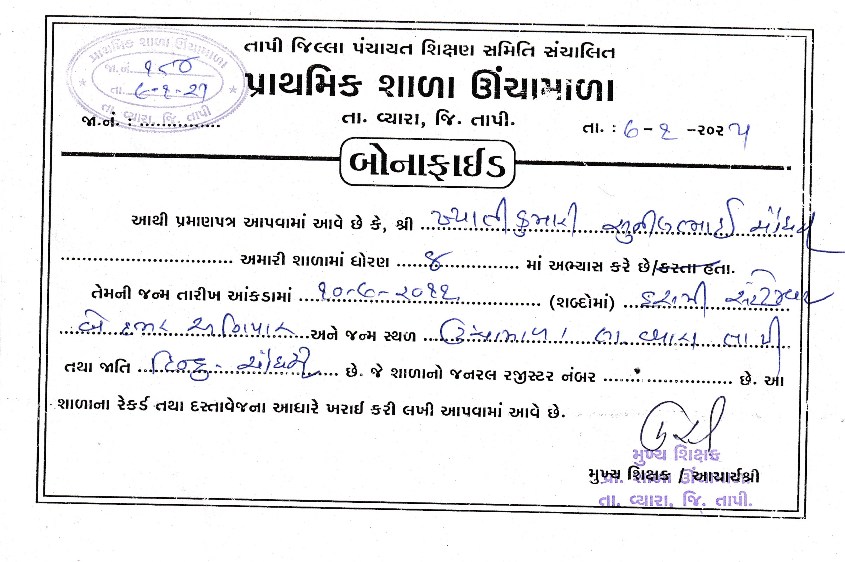 તાપી જિલ્લા પંચાયત શિક્ષણ સમિતિ સંચાલિત
પ્રાથમિક શાળા ઊંચામાળા
તા. વ્યારા, જિ. તાપી.
પ્રાથમિક શાળા ઊંચામાળા
જા.નં.
તા.
તા. વ્યારા, જિ. તાપી
જા.નં. : ............... તા. : ૬-૧ -૨૦૨૫
બોનાફાઈડ
આથી પ્રમાણપત્ર આપવામાં આવે છે કે, શ્રી ખ્યાતીકુમારી સુનીલભાઈ ચૌધરી
અમારી શાળામાં ધોરણ ૪ માં અભ્યાસ કરે છે/કરતા હતા.
તેમની જન્મ તારીખ આંકડામાં (શબ્દોમાં) દસમી
બે હજાર અને જન્મ સ્થળ ઊંચામાળા તા વ્યારા તાપી
તથા જાતિ હિન્દુ - ચૌધરી છે. જે શાળાનો જનરલ રજીસ્ટર નંબર ..................... છે. આ
શાળાના રેકર્ડ તથા દસ્તાવેજના આધારે ખરાઈ કરી લખી આપવામાં આવે છે.
મુખ્ય શિક્ષક
મુખ્ય શિક્ષક / આચાર્યશ્રી
પ્રા. શાળા ઊંચામાળા
તા. વ્યારા, જિ. તાપી.